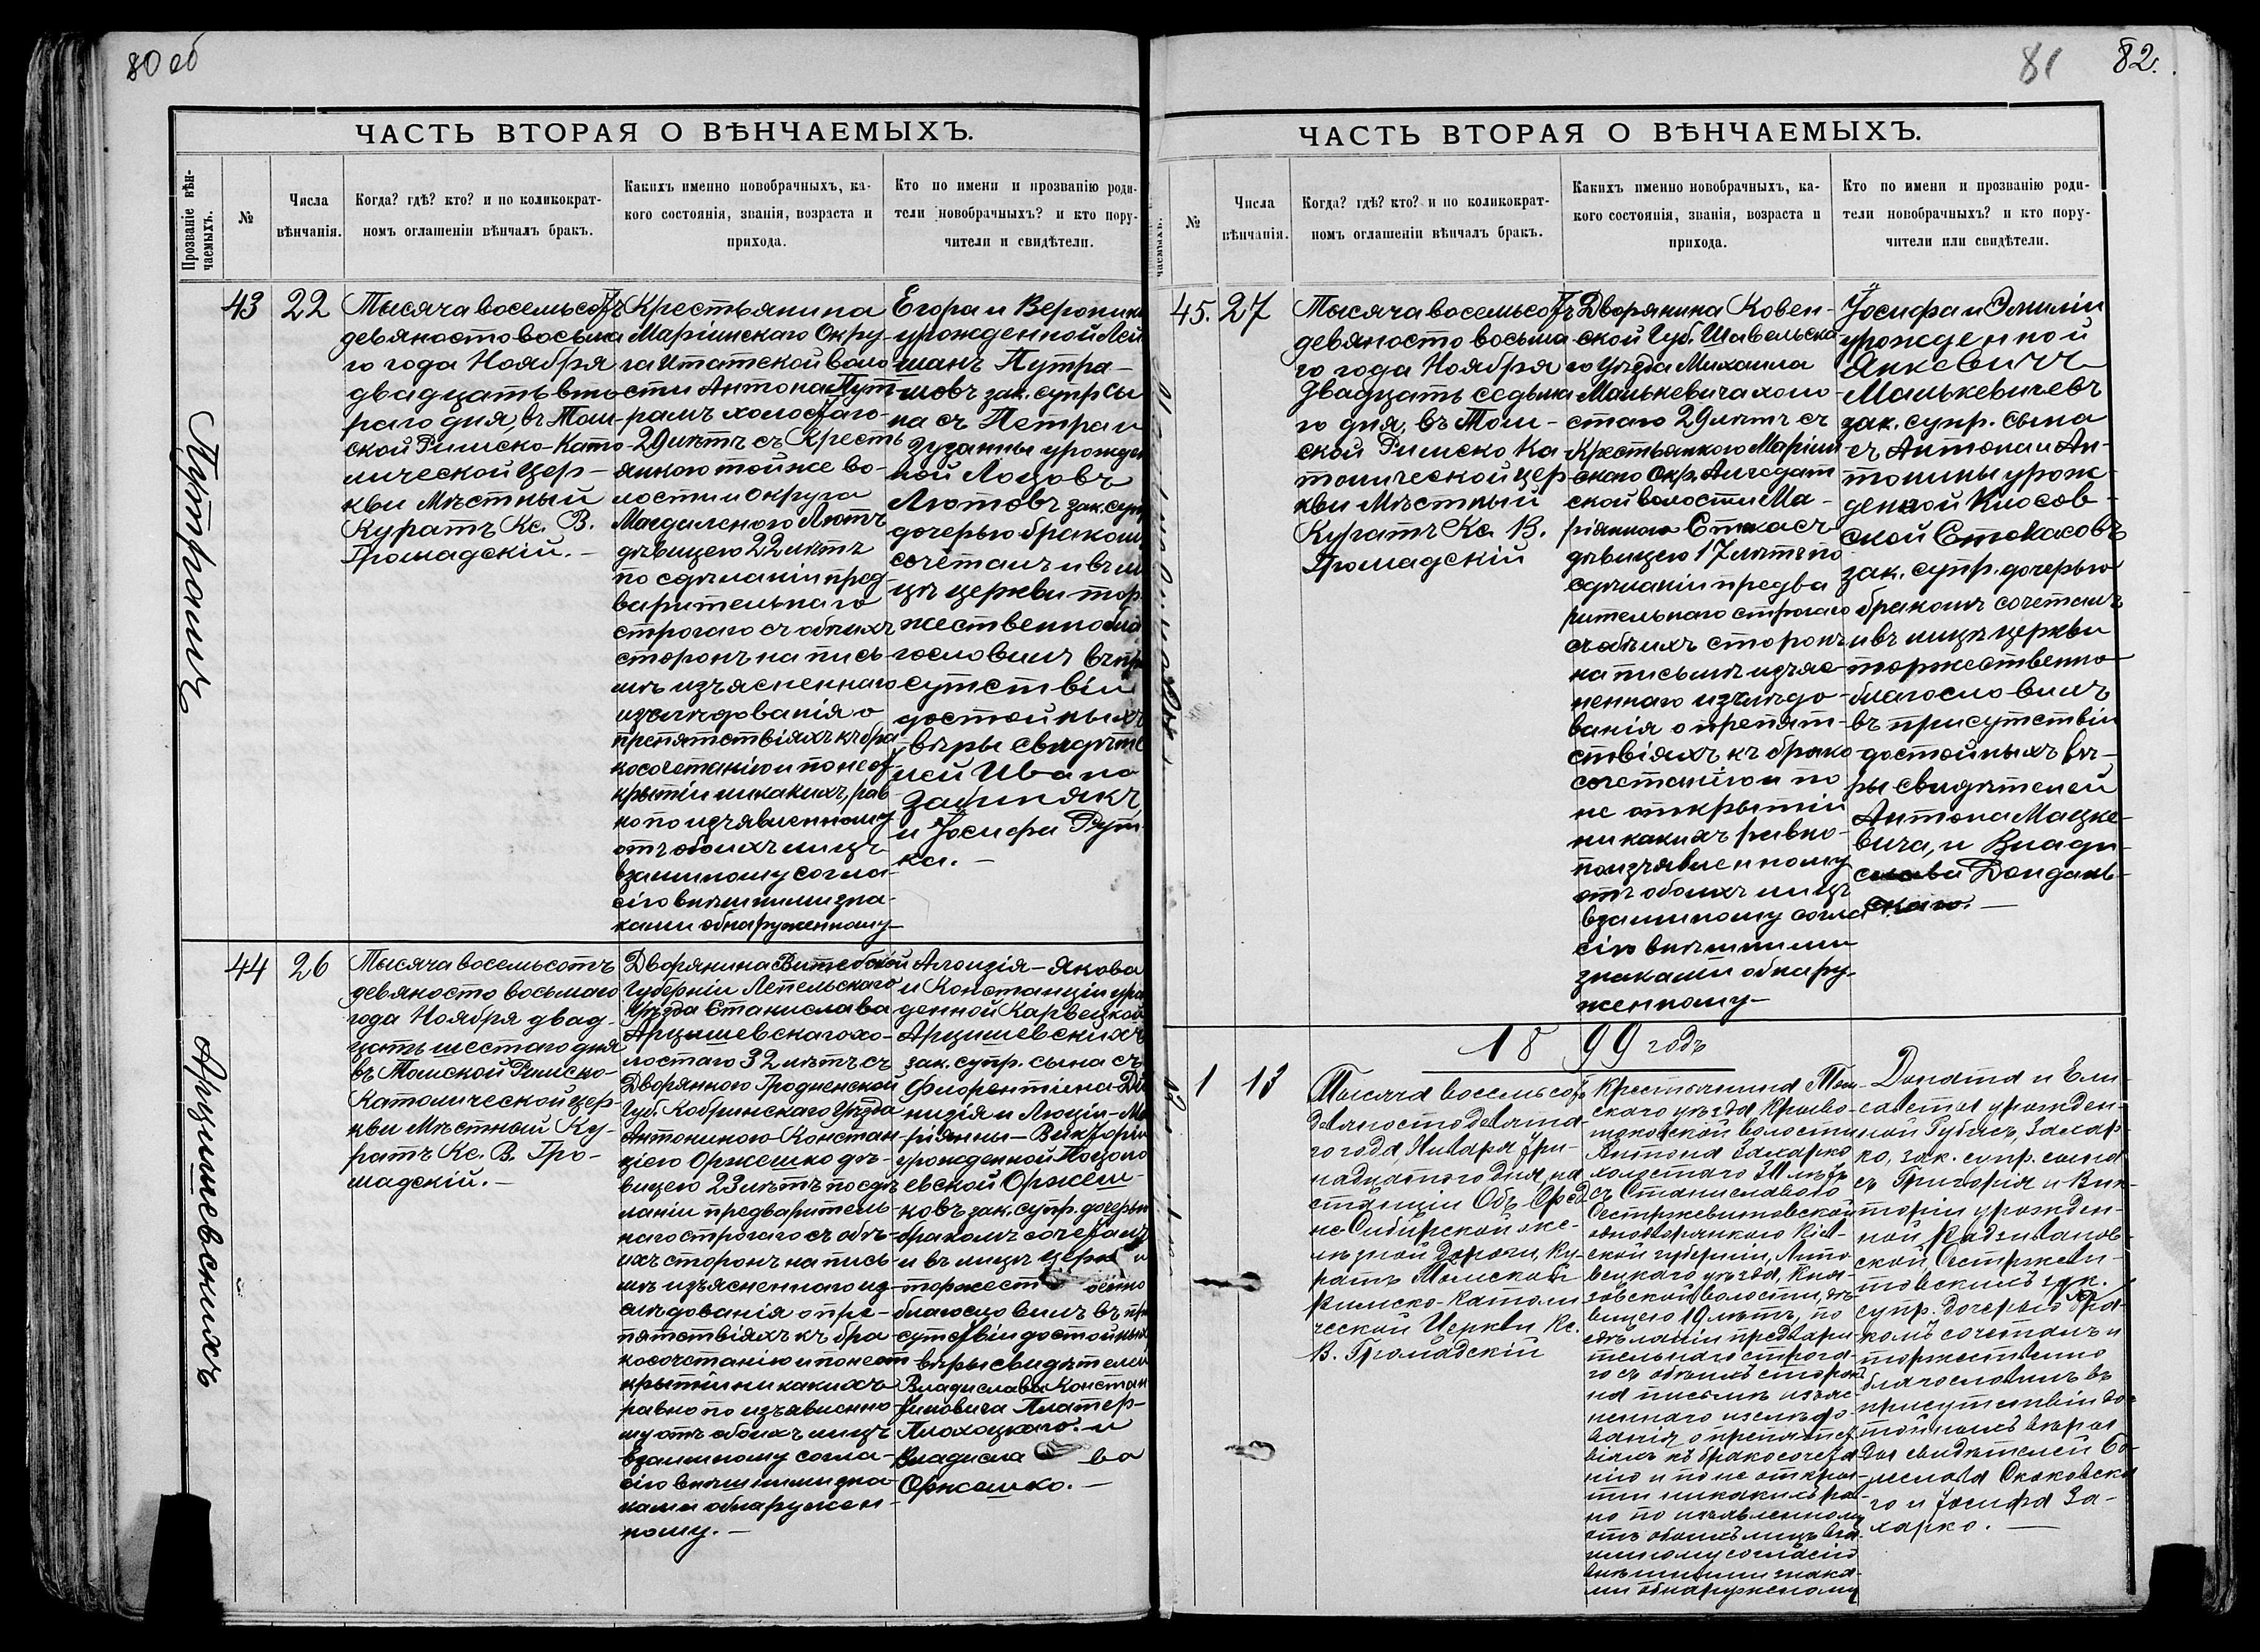 80 об
ЧАСТЬ ВТОРАЯ О ВѢНЧАЕМЫХЪ.
Прозваніе вѣн-
чаемыхъ.
№
Числа
вѣнчанія.
Когда? гдѣ? кто? и по коликократ-
номъ оглашеніи вѣнчалъ бракъ.
Какихъ именно новобрачныхъ, ка-
кого состоянія, званія, возраста и
прихода.
Кто по имени и прозванію роди-
тели новобрачныхъ? и кто пору-
чители и свидѣтели.
Путрамъ
43
22
Тысяча восемьсотъ
девяносто восьма
го года Ноября
двадцать вто
раго дня, въ Том
ской Римско-Като
лической Цер-
кви Мѣстный
Куратъ Кс. В.
Громадскій.-
Крестьянина
Маріинскаго Окру-
га Итатской воло
сти Антона Пут
рамъ холостаго
29 лѣтъ съ Кресть
янкою той же во-
лости и Округа
Магдаленою Лютъ
дѣвицею 22 лѣтъ
по сдѣланіи пред
варительнаго
строгаго съ обѣихъ
сторонъ на пись-
мѣ изъясненнаго
изслѣдованія о
препятствіяхъ къ бра
косочетанію и по неот
крытіи никакихъ, рав
но по изъявленному
отъ обоихъ лицъ
взаимному согла-
сію внѣшними зна-
ками обнаруженному-
Егора и Вероники
урожденной Лей
манъ Путра-
мовъ зак. супр. сы
на съ Петра и
Зузанны урожден
ной Лоцовъ
Лютовъ зак. суп
дочерью бракомъ
сочеталъ и въ ли
цѣ церкви тор
жественно бла
гословилъ въ при
сутствіи
достойныхъ
вѣры свидѣте
лей Ивана
Забинякъ
и Іосифа Рут
ка.-
Арцишевскихъ
44
26
Тысяча восемьсотъ
девяносто восьмаго
года Ноября двад-
цать шестаго дня
въ Томской Римско-
Католической Цер-
кви Мѣстный Ку-
ратъ Кс. В. Гро-
мадскій.-
Дворянина Витебской
Губерніи Лепельскаго
Уѣзда Станислава
Арцишевскаго хо-
лостаго 32 лѣтъ съ
Дворянкою Гродненской
Губ. Кобринскаго Уѣзда
Антониною Констан
ціею Оржешко дѣ-
вицею 23 лѣтъ по сдѣ
ланіи предваритель
наго строгаго съ обѣ-
ихъ сторонъ на пись-
мѣ изъясненнаго из-
слѣдованія о пре-
пятствіяхъ къ бра
косочетанію и по неот
крытіи никакихъ
равно по изъявленно
му отъ обоихъ лицъ
взаимному согла-
сію внѣшними зна-
ками обнаружен-
ному.-
Алоизія-Якова
и Констанціи уро
жденной Карвецкой
Арцишевскихъ
зак. супр. сына съ
Флорентіена-Ді
низія и Люціи-Ма
ріянны-Викторіи
урожденной
евской Оржеш-
ковъ зак. супр. дочерью
бракомъ сочеталъ
и въ лицѣ церкви
торжественно
благословилъ въ при
сутствіи достойныхъ
вѣры свидѣтелей
Владислава Констан
тиновича Платер-
Плохоцкаго и
Владислава
Оржешко.-
81
82.
ЧАСТЬ ВТОРАЯ О ВѢНЧАЕМЫХЪ.
чаемыхъ.
№
Числа
вѣнчанія.
Когда? гдѣ? кто? и по коликократ-
номъ оглашеніи вѣнчалъ бракъ.
Какихъ именно новобрачныхъ, ка-
кого состоянія, званія, возраста и
прихода.
Кто по имени и прозванію роди-
тели новобрачныхъ? и кто пору-
чители или свидѣтели.
45.
27
Тысяча восемьсотъ
девяносто восьма
го года Ноября
двадцать седьма
го дня, въ Том-
ской Римско Ка
толической цер
кви Мѣстный
Куратъ Кс. В.
Громадскій
Дворянина Ковен-
ской Губ. Шавельска
го Уѣзда Михаила
Малькевича холо-
стаго 29 лѣтъ съ
Крестьянкою Маріин
скаго Окр. Алчедат
ской волости Ма-
ріянною Стокасъ
дѣвицею 17 лѣтъ по
сдѣланіи предва
рительнаго строгаго
съ обѣихъ сторонъ
на письмѣ изъяс-
неннаго изслѣдо-
ванія о препят-
ствіяхъ къ брако
сочетанію и по
не открытіи
никакихъ равно
по изъявленному
отъ обоихъ лицъ
взаимному согла
сію внѣшними
знаками обнару-
женному-
Іосифа и Эмиліи
урожденной
Янкевичъ
Малькевичевъ
зак. супр. сына
съ Антона и Ан-
тонины урож-
денной Клосов-
ской Стокасовъ
зак. супр. дочерью
бракомъ сочеталъ
и въ лицѣ церкви
торжественно
благословилъ
въ присутствіи
достойныхъ вѣ-
ры свидѣтелей
Антона Мацке-
вича, и Влади-
слава Дональ-
скаго.-
1899 годъ
1
13
Тысяча восемьсотъ
девяносто девята-
го года, Января три-
надцатого дня, на
станціи Объ Сред
не Сибирской же-
лѣзной Дороги, Ку-
ратъ Томской
Римско-Католи
ческой Церкви Кс.
В. Громадскій
Крестьянина Том-
скаго уѣзда, Криво-
шековской волости
Антона Захарко
холостаго лѣтъ
съ Станиславою
однодворянкою Кіев-
ской губерніи, Липо-
вецкаго уѣзда,
волости, дѣ-
вицею 19 лѣтъ, по
сдѣланіи предвари
тельнаго строга-
го съ обѣихъ сторонъ
на письмѣ изъяс-
неннаго изслѣдо-
ванія о препятст
віяхъ къ бракосочета
нію и по не откры-
тіи никакихъ рав
но по изъявленному
отъ обоихъ лицъ вза
имному согласію
внѣшними знака-
ми обнаруженому
Доната и Ели-
саветы урожден-
ной Губасъ, Захар-
ко, зак. супр. сына
съ Григорія и Вик-
торіи урожден-
ной Радзиванов-
ской,
зак.
супр. дочерью бра-
комъ сочеталъ и
торжественно
благословилъ въ
присутствіи дос-
тойныхъ вѣры
свидѣтелей Бо-
леслава Ококовска
го и Іосифа За-
харко.-